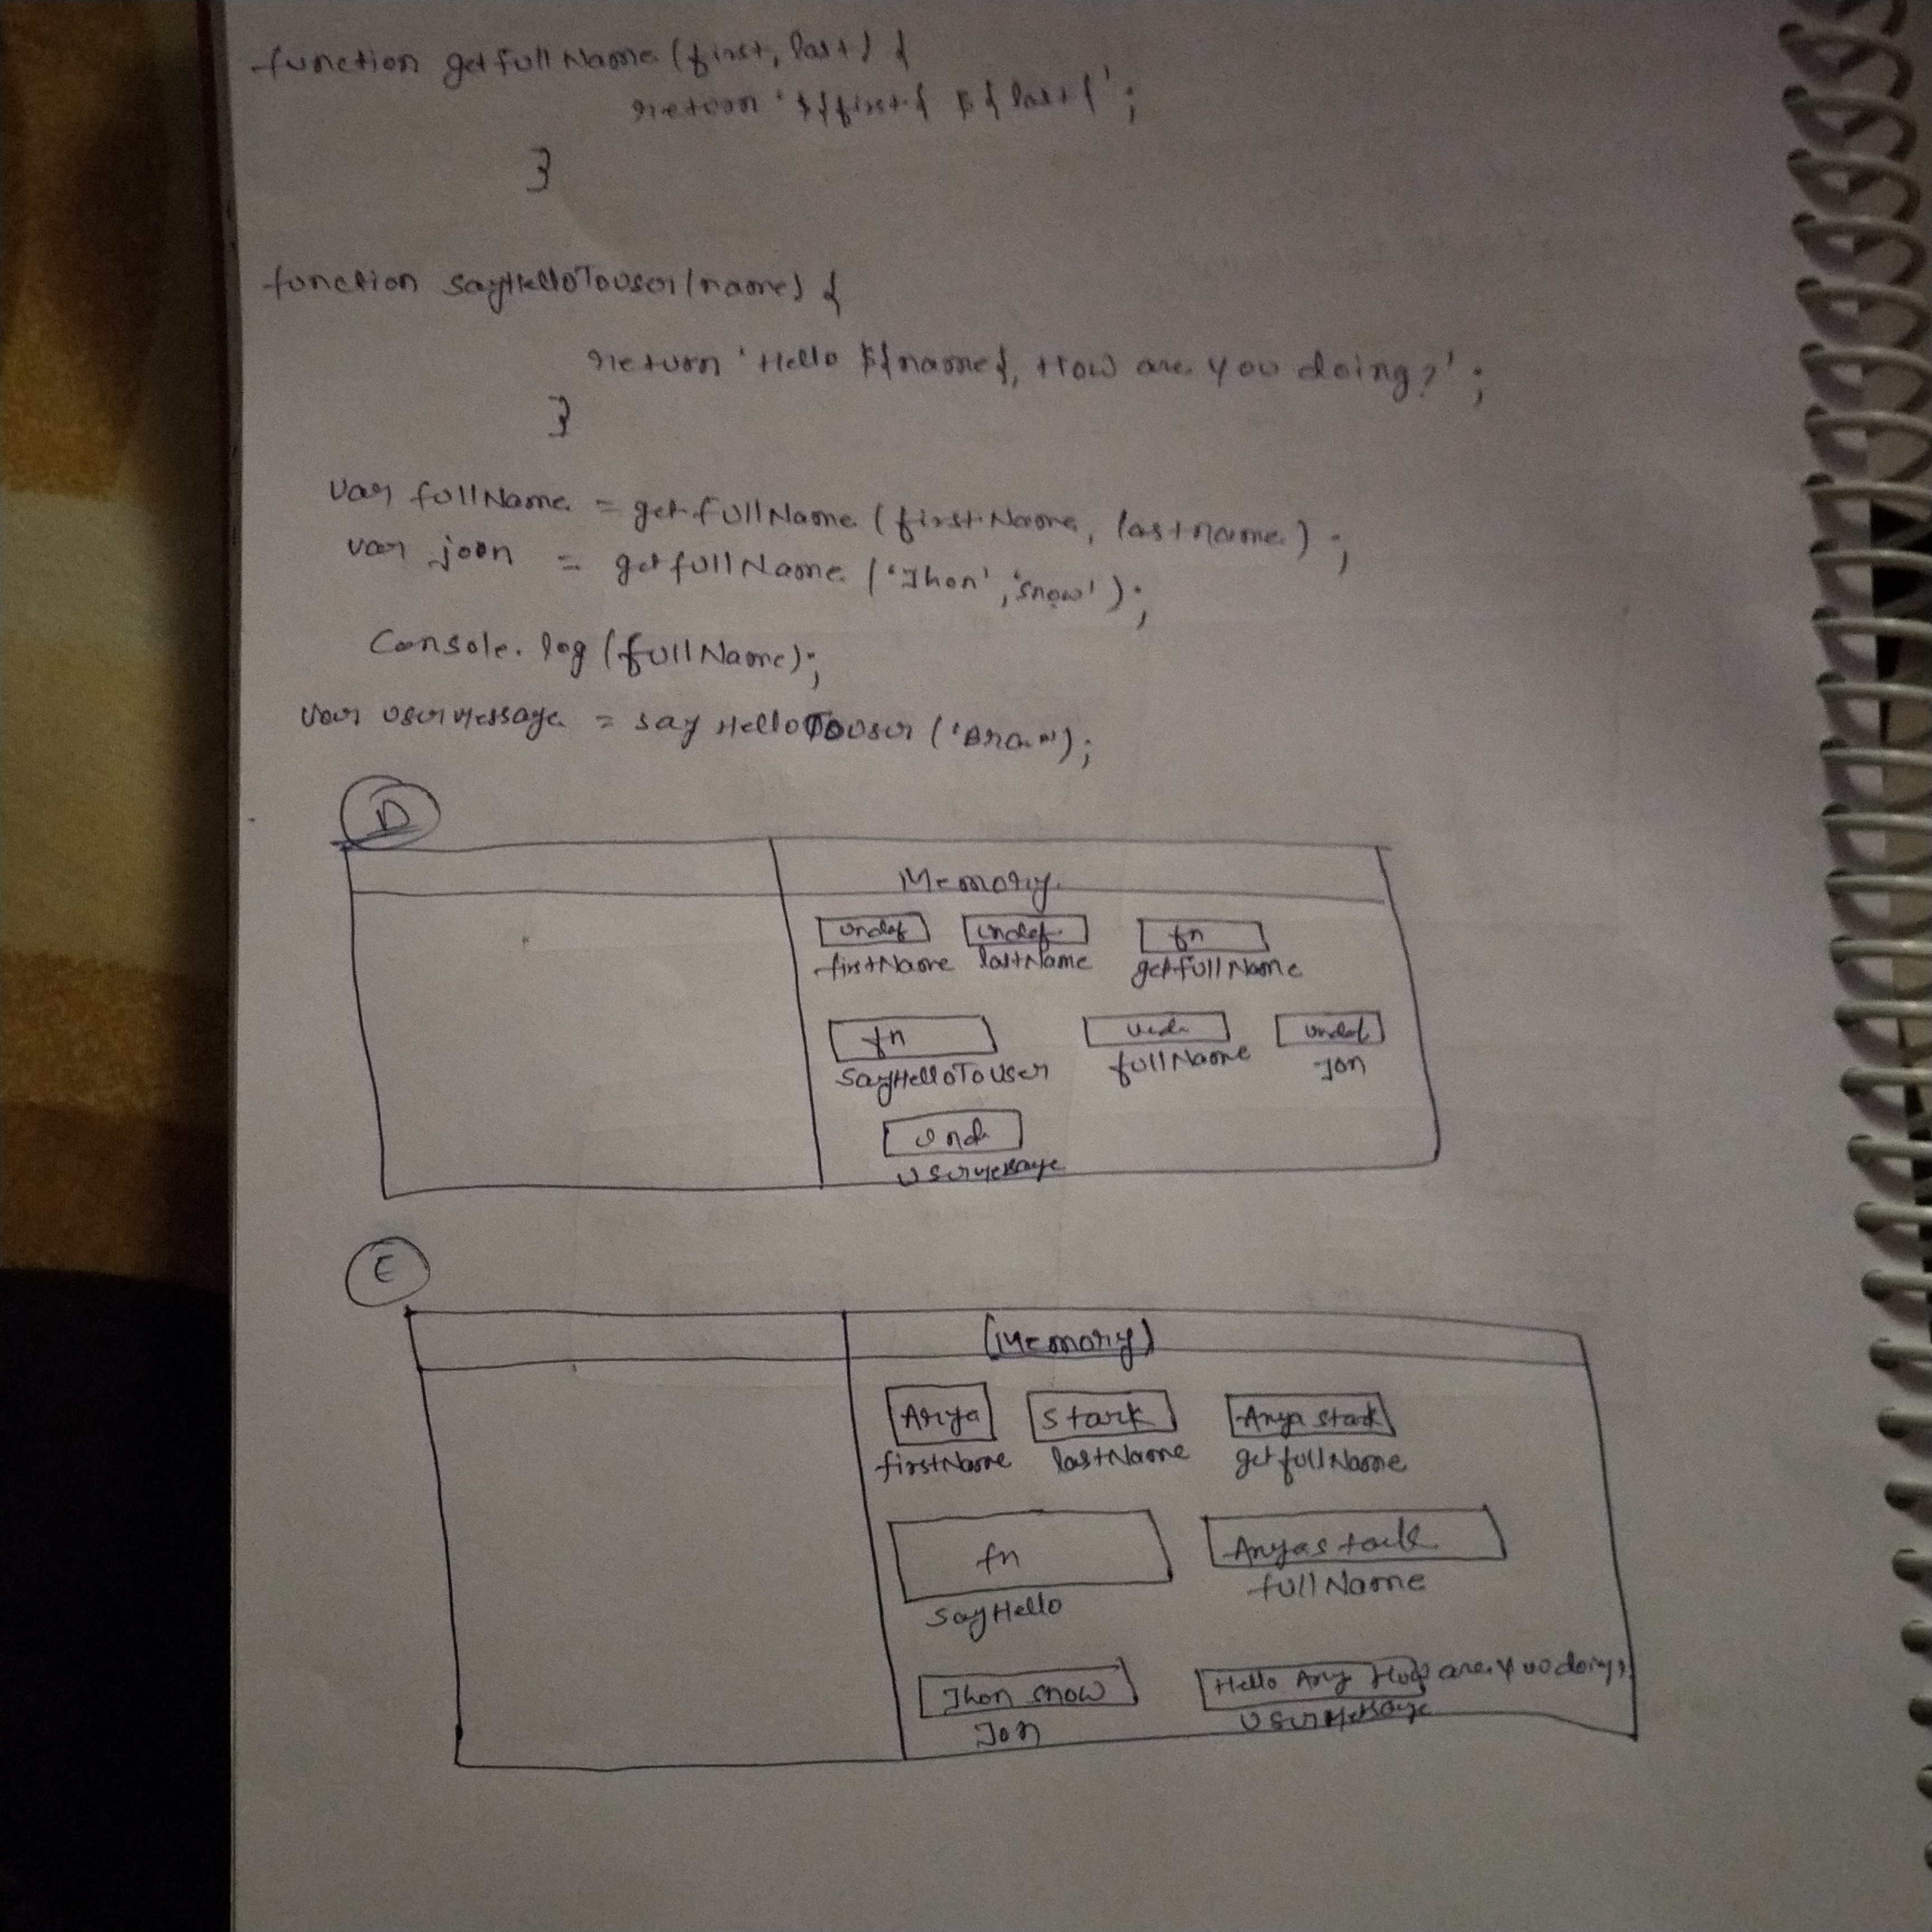 function getfullName (first, last) {
return '${first{ ${last{';
}
function sayHelloToUser(name) {
return 'Hello ${name{, How are you doing?';
}
var fullName = getfullName (firstName, lastname);
var joon = getfullName ('Jhon', 'snow');
Console.log (fullName);
var userMessage = say HelloToUser ('Bran');
D
Memory
undef undef fn
firstName lastName getfullName
fn undef
SayHelloToUser fullName Jon
und
userMessage
E
(Memory)
Arya Stark Arya stark
firstName lastName getfullName
fn Aryastark
SayHello fullName
Jhon snow Hello Ary How are you doing?
Jon userMessage